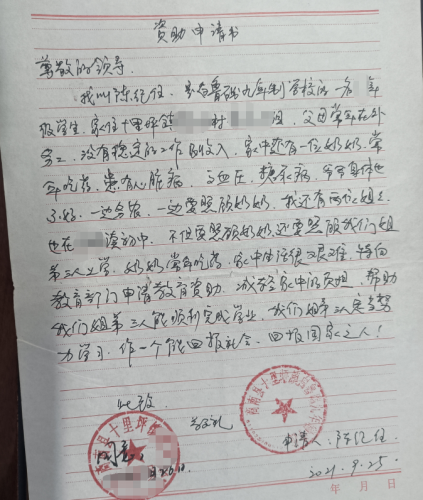 资助申请书
尊敬的领导
我叫陈纪任，是鲁硖九年制学校的一名 年
级学生，家住十里坪镇 村 组，父母常年在外
务工，没有稳定的工作和收入，家中还有一位奶奶，常
年吃药，患有心脏病，高血压，糖尿病，爷爷身体也
不好，一边务农，一边要照顾奶奶，我还有两位姐姐
也在 读初中，不但要照顾奶奶还要照顾我们姐
弟三人上学，奶奶常年吃药，家中生活很艰难，特向
教育部门申请教育资助，减轻家中的负担，帮助
我们姐弟三人能顺利完成学业，我们姐弟三人一定努
力学习，作一个能回报社会，回报国家之人！
此致
敬礼
同意
申请人：陈纪任
2021.9.25.
年 月 日
商南县十里坪镇
商南县十里坪镇